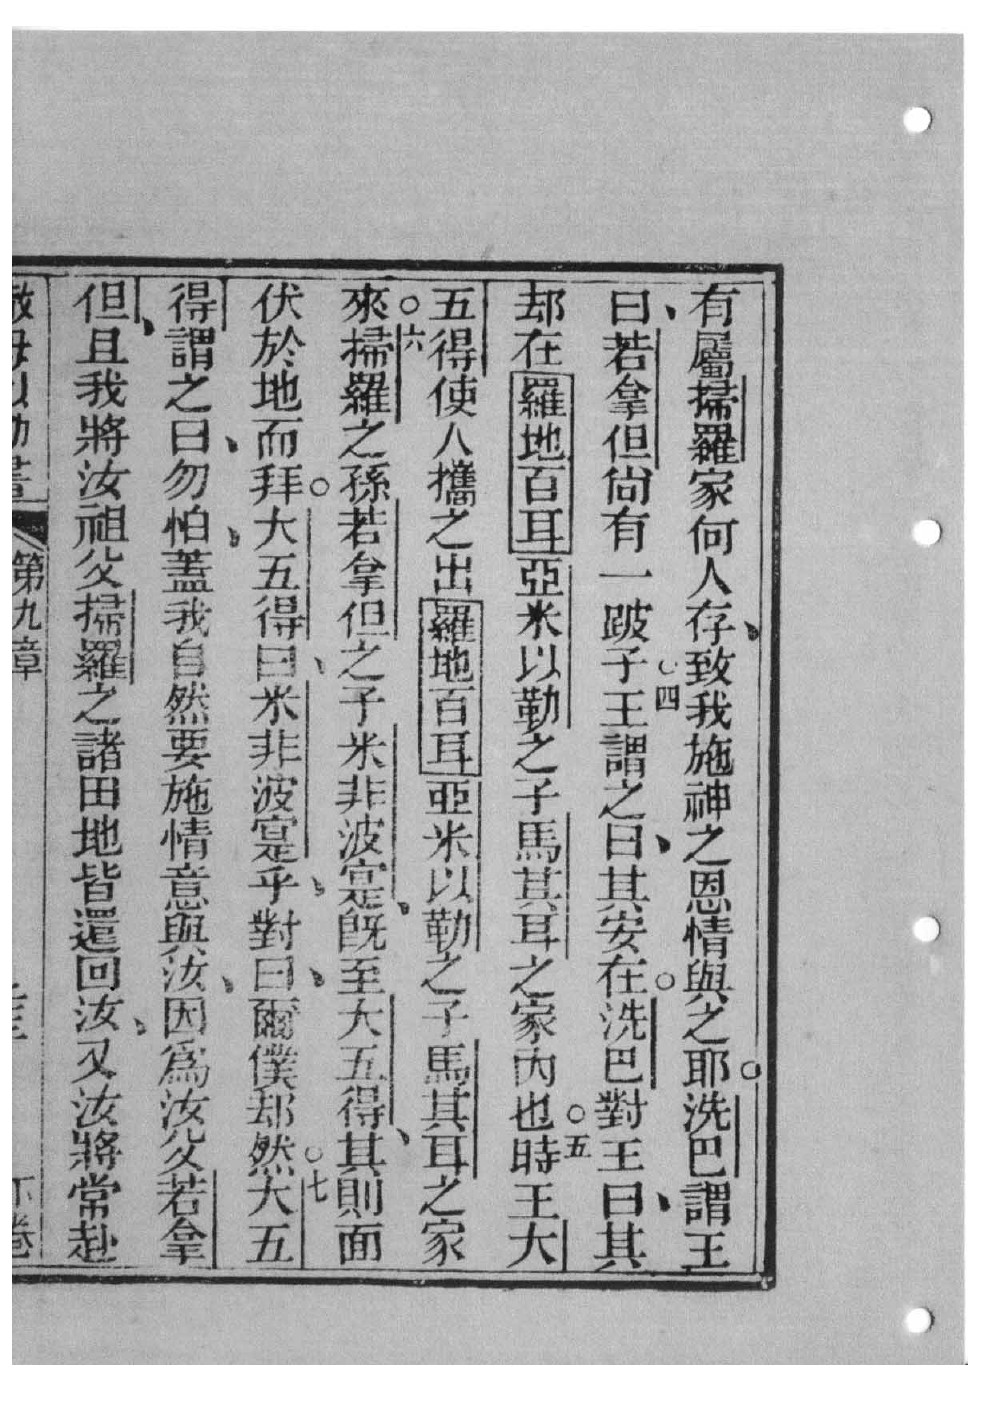 有屬掃羅家何人存、致我施神之恩情與之耶。洗巴謂王
曰、若拿但尙有一跛子○四王謂之曰、其安在。洗巴對王曰、其
却在羅地百耳亞米以勒之子馬其耳之家內也○五時王大
五得使人攜之出羅地百耳亞米以勒之子馬其耳之家
○六來掃羅之孫若拿但之子米非波寔、旣至大五得、其則面
伏於地而拜。大五得曰、米非波寔乎、對曰、爾僕却然○七大五
得謂之曰、勿怕、蓋我自然要施情意與汝、因爲汝父若拿
但、且我將汝祖父掃羅之諸田地皆還回汝、又汝將常赴
第九章
下卷